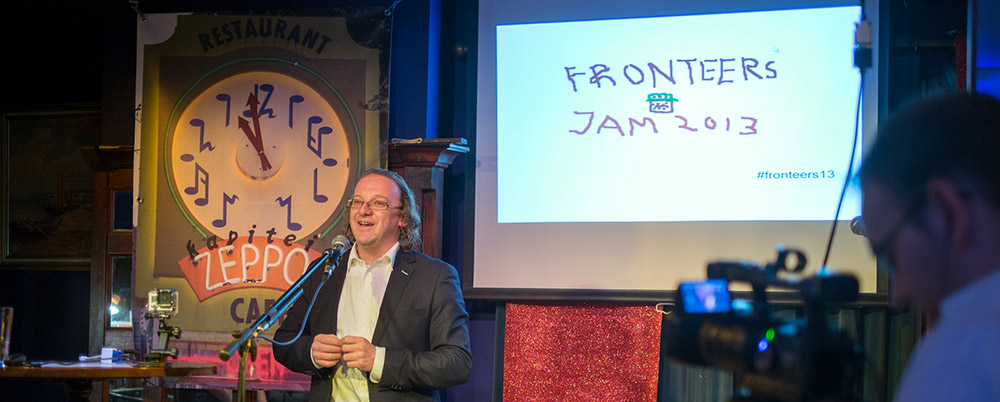 RESTAURANT
kapitei
ZEPPO
CAF
FRONTEERS
JAM 2013
#fronteers13